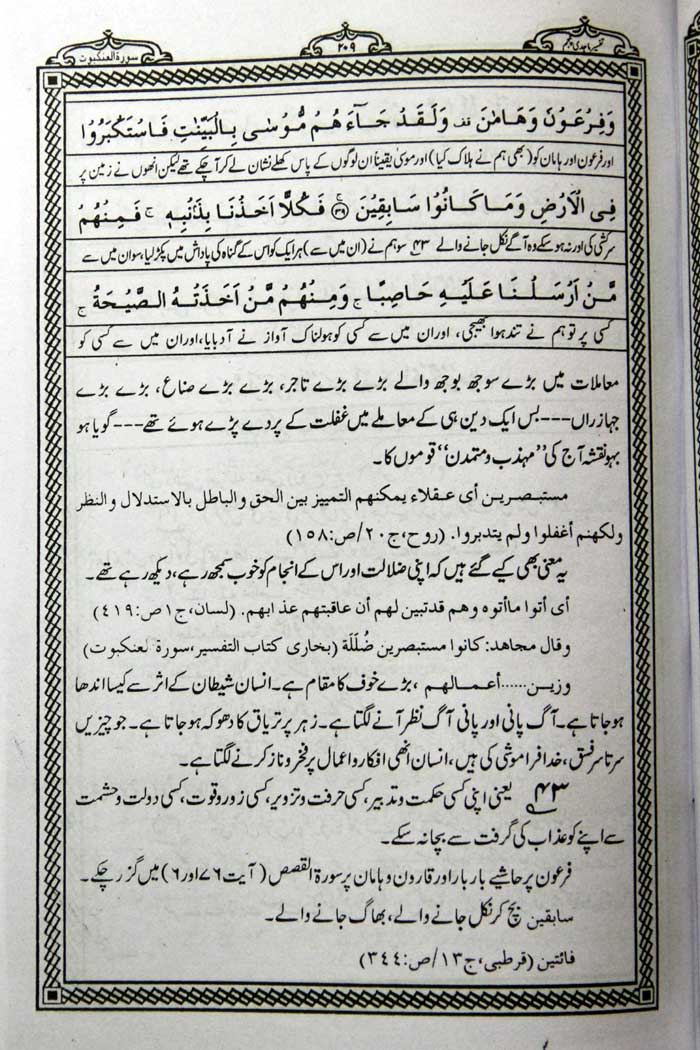 تفسیر ماجدی پنجم
۲۰۹
سورة العنكبوت
وَفِرْعَوْنَ وَهَامٰنَ قف وَلَقَدْ جَآءَهُمْ مُّوْسٰى بِالْبَيِّنٰتِ فَاسْتَكْبَرُوْا
اور فرعون اور ہامان کو (بھی ہم نے ہلاک کیا) اور موسیٰ یقیناً ان لوگوں کے پاس کھلے نشان لے کر آچکے تھے لیکن انھوں نے زمین پر
فِى الْاَرْضِ وَمَا كَانُوْا سَابِقِيْنَ ۚ ﴿۳۹﴾ فَكُلًّا اَخَذْنَا بِذَنْۢبِهٖ ۚ فَمِنْهُمْ
سرکشی کی اور نہ ہوسکے وہ آگے نکل جانے والے ۴۳ سو ہم نے (ان میں سے) ہر ایک کو اس کے گناہ کی پاداش میں پکڑ لیا، سو ان میں سے
مَّنْ اَرْسَلْنَا عَلَيْهِ حَاصِبًا ۚ وَمِنْهُمْ مَّنْ اَخَذَتْهُ الصَّيْحَةُ ۚ
کسی پر تو ہم نے تند ہوا بھیجی، اور ان میں سے کسی کو ہولناک آواز نے آدبایا، اور ان میں سے کسی کو
معاملات میں بڑے سوجھ بوجھ والے بڑے بڑے تاجر، بڑے بڑے صناع، بڑے بڑے
جہازراں---بس ایک دین ہی کے معاملے میں غفلت کے پردے پڑے ہوئے تھے---گویا ہو
بہو نقشہ آج کی ”مہذب و متمدن“ قوموں کا۔
مستبصرين أى عقلاء يمكنهم التمييز بين الحق والباطل بالاستدلال والنظر
ولكنهم أغفلوا ولم يتدبروا. (روح، ج۲۰/ص:۱۵۸)
یہ معنی بھی کیے گئے ہیں کہ اپنی ضلالت اور اس کے انجام کو خوب سمجھ رہے، دیکھ رہے تھے۔
أى أتوا ماأتوه وهم قدتبين لهم أن عاقبتهم عذابهم. (لسان، ج۱ ص:۴۱۹)
وقال مجاهد: كانوا مستبصرين ضَلَلَة (بخارى كتاب التفسير، سورة لعنكبوت)
وزيــن......أعمــالهم ، بڑے خوف کا مقام ہے۔ انسان شیطان کے اثر سے کیسا اندھا
ہوجاتا ہے۔ آگ پانی اور پانی آگ نظر آنے لگتا ہے۔ زہر پر تریاق کا دھوکہ ہوجاتا ہے۔ جو چیزیں
سرتاسر فسق، خدا فراموشی کی ہیں، انسان انھی افکار و اعمال پر فخر و ناز کرنے لگتا ہے۔
۴۳ یعنی اپنی کسی حکمت و تدبیر، کسی حرفت و تزویر، کسی زور و قوت، کسی دولت و حشمت
سے اپنے کو عذاب کی گرفت سے بچانہ سکے۔
فرعون پر حاشیے بار بار اور قارون و ہامان پر سورة القصص (آیت ۷۶ اور ۶) میں گزر چکے۔
سابقین بچ کر نکل جانے والے، بھاگ جانے والے۔
فائتين (قرطبی، ج۱۳/ص:۳۴۴)